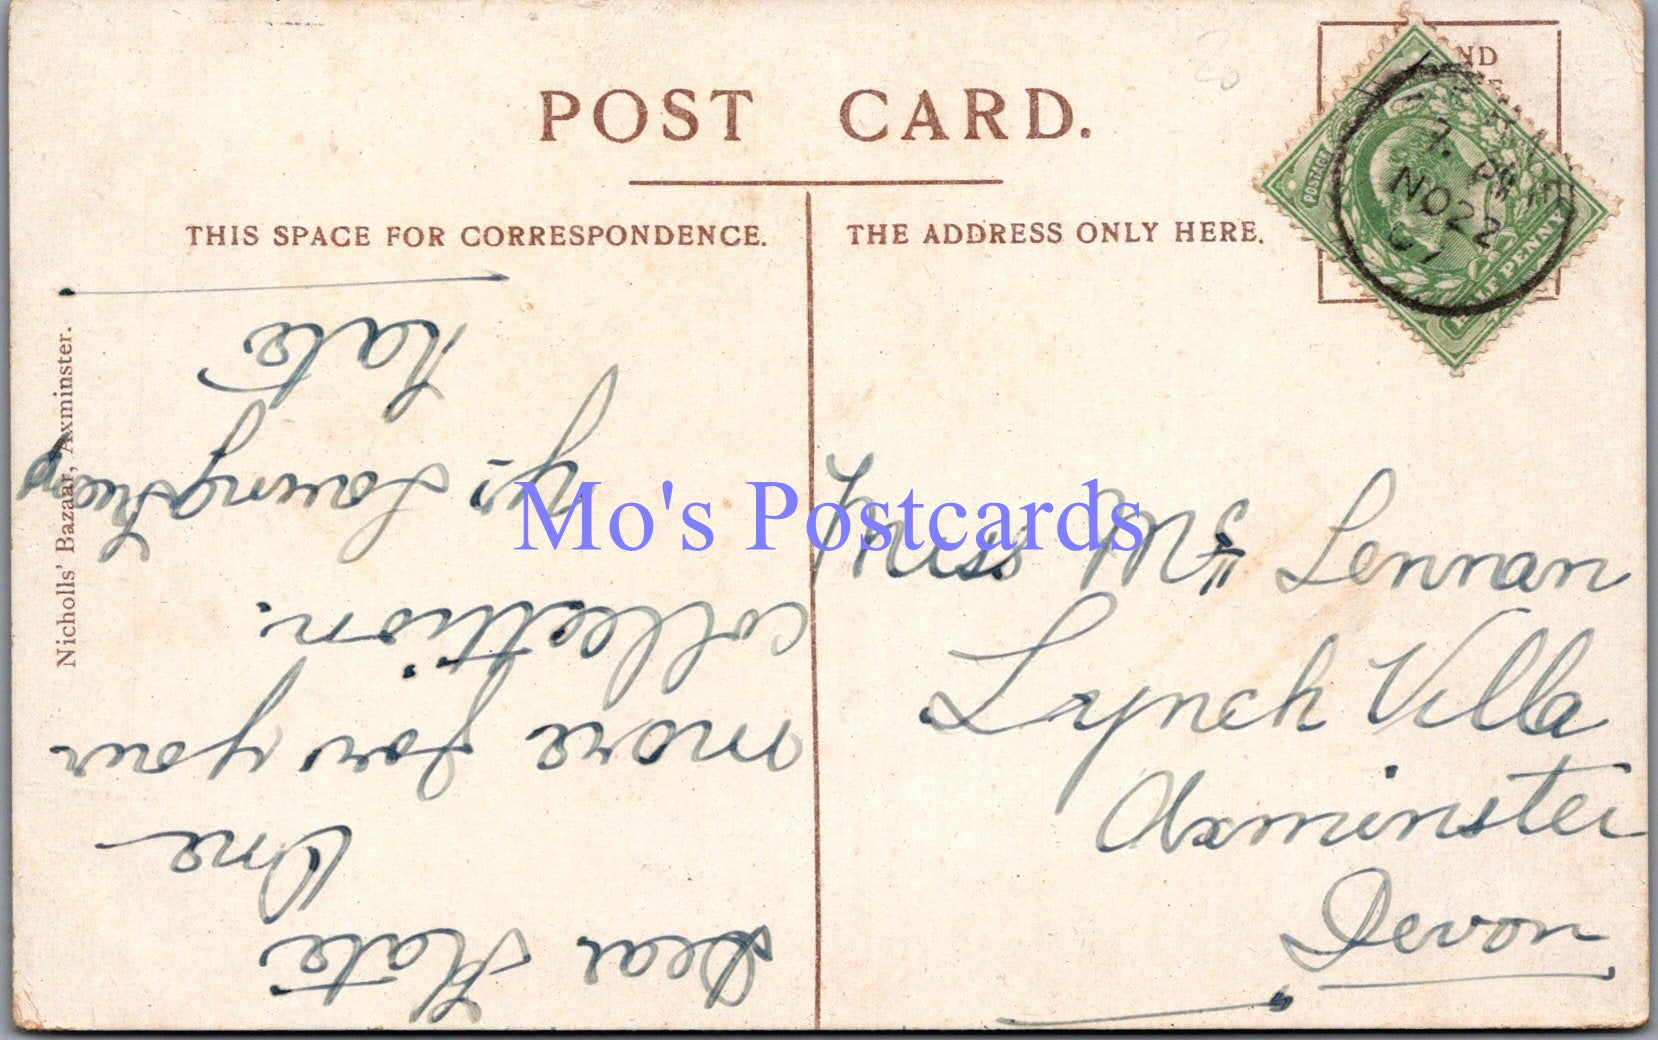 POST CARD.
THIS SPACE FOR CORRESPONDENCE.
THE ADDRESS ONLY HERE.
Nicholls' Bazaar, Axminster.
Dear Kate
One
more for your
collection.
Yrs Loving Friend
Kate
Miss Mc Lennan
Lynch Villa
Axminster
Devon
POSTAGE
HALF PENNY
NO 22
07
Mo's Postcards